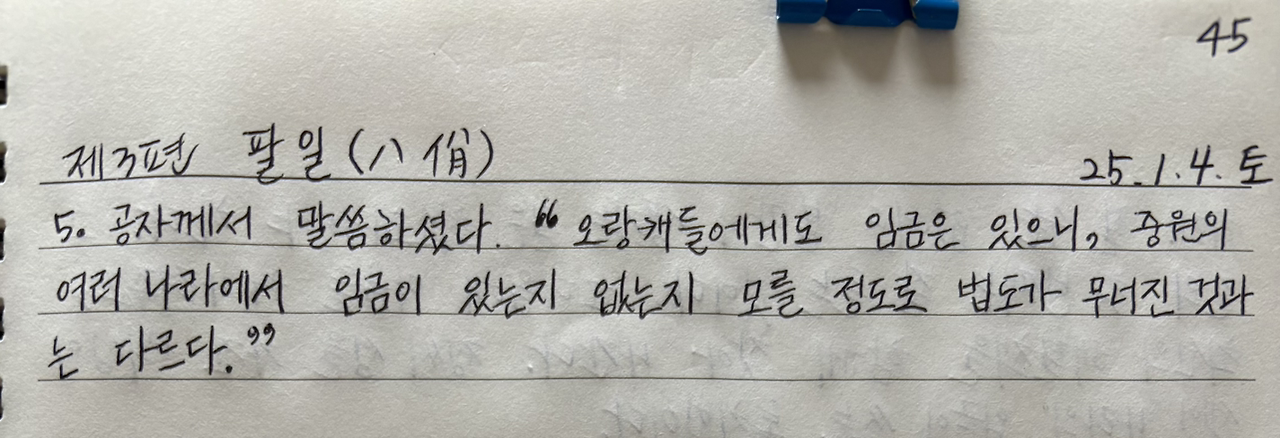 45
제3편 팔일(八佾) 25.1.4.토
5. 공자께서 말씀하셨다. "오랑캐들에게도 임금은 있으니, 중원의
여러 나라에서 임금이 있는지 없는지 모를 정도로 법도가 무너진 것과
는 다르다."